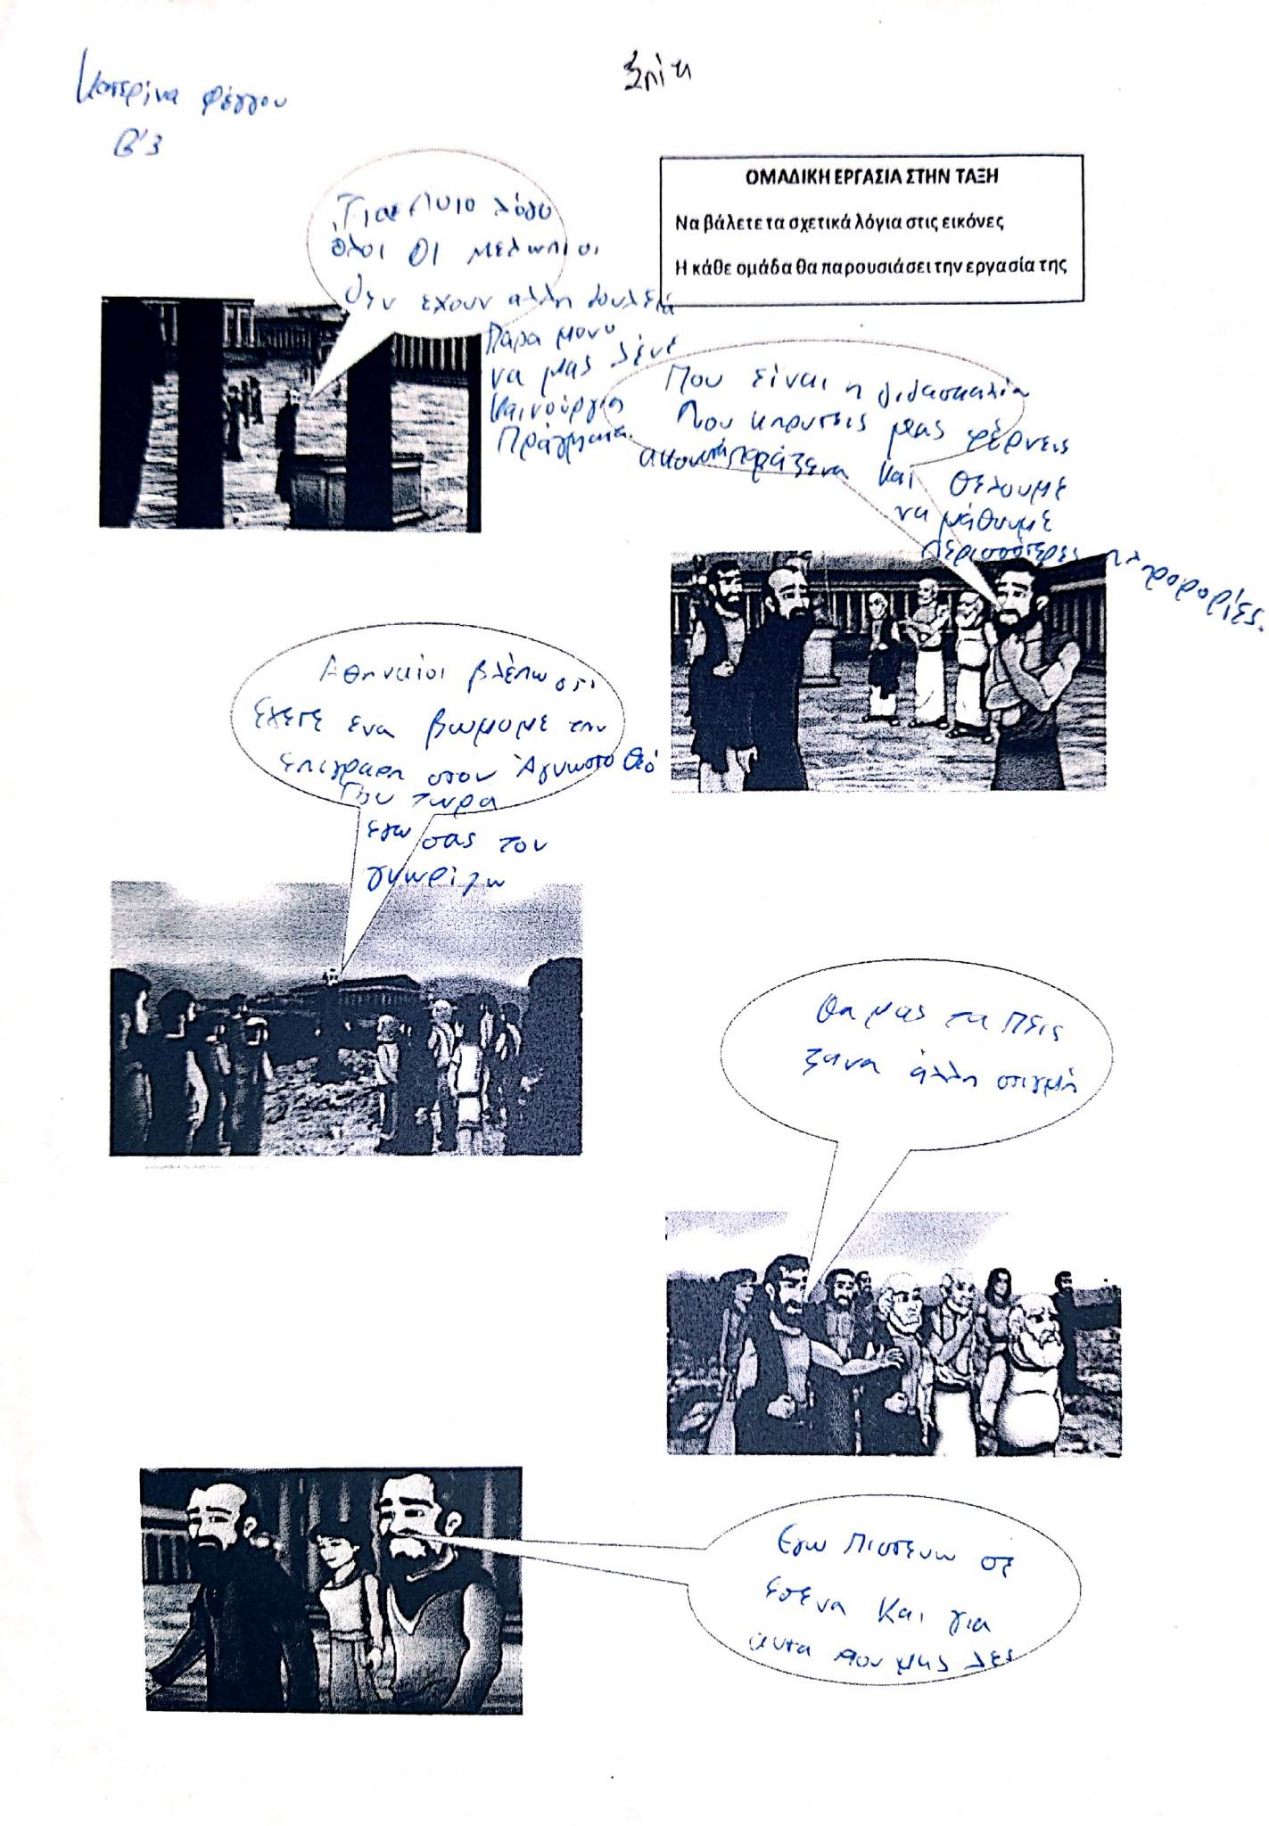 Κατερίνα Φέγγου
Β'3
Σπίτι
ΟΜΑΔΙΚΗ ΕΡΓΑΣΙΑ ΣΤΗΝ ΤΑΞΗ
Να βάλετε τα σχετικά λόγια στις εικόνες
Η κάθε ομάδα θα παρουσιάσει την εργασία της
λόγο
όλοι οι
δεν έχουν αλλη δουλειά
παρα μονο
να μας λένε
καινούργια
πράγματα.
Που είναι η διδασκαλία
που κηρυττεις μας φέρνεις
παράξενα και θελουμε
να μάθουμε
περισσότερες πληροφορίες.
Αθηναίοι βλέπω οτι
έχετε ενα βωμο με την
επιγραφη στον Άγνωστο Θεό
Που τωρα
εγω σας τον
γνωρίζω
Θα μας τα πεις
ξανα άλλη στιγμή
Εγω πιστευω σε
εσενα και για
αυτα που μας λες